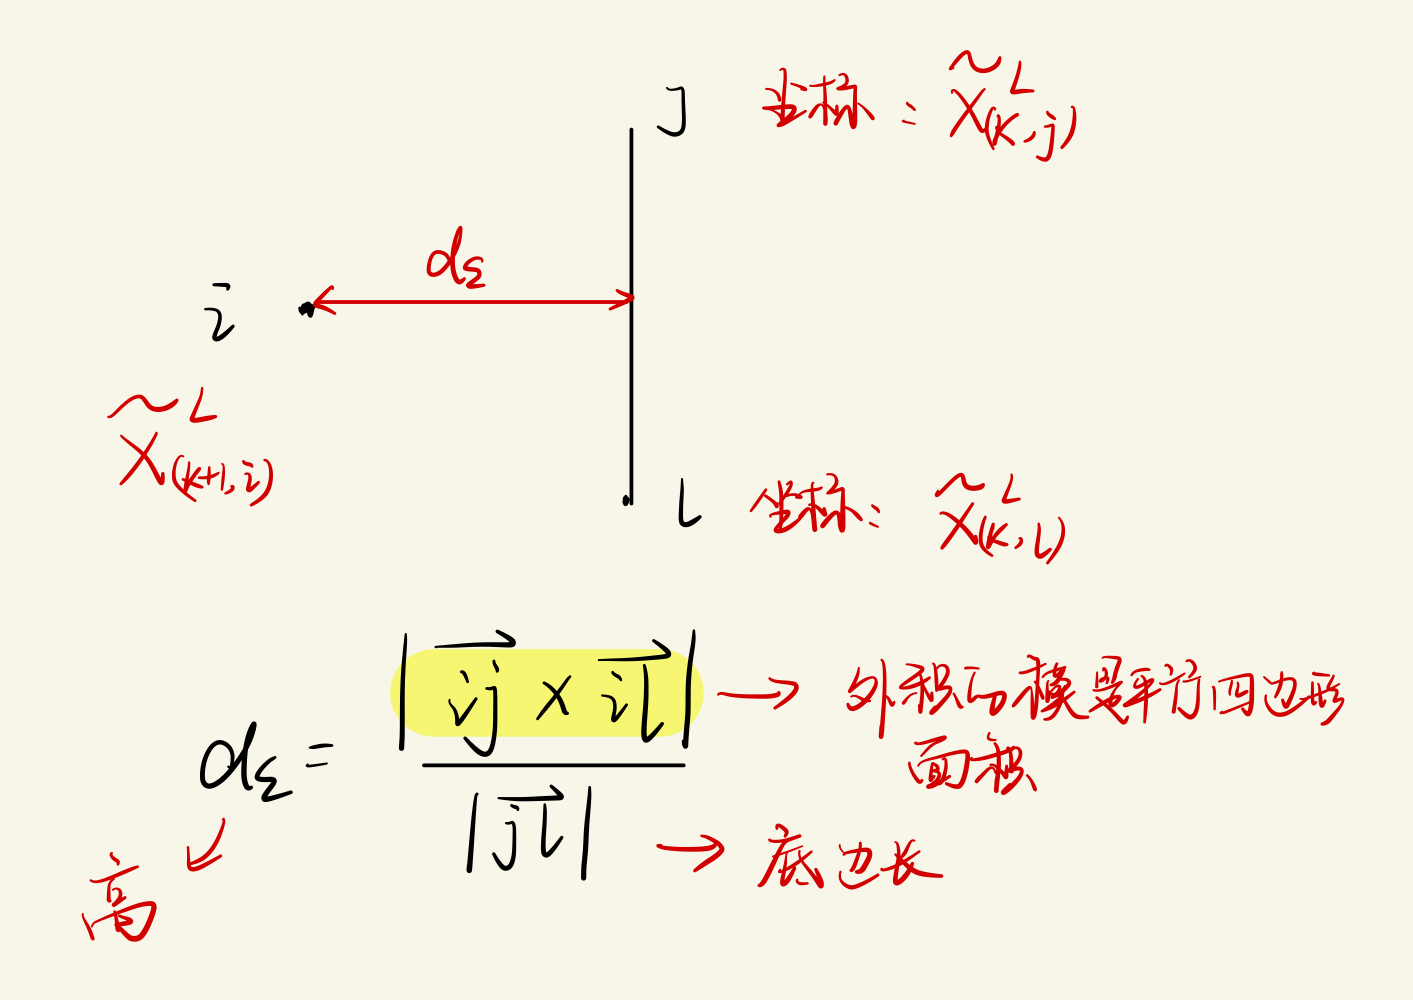 J 坐标: X̃ᴸ(K,j)
dε
i
X̃ᴸ(k+1,i)
l 坐标: X̃ᴸ(K,l)
dε = |ij × il| / |jl|
→ 外积的模是平行四边形
面积
→ 底边长
高